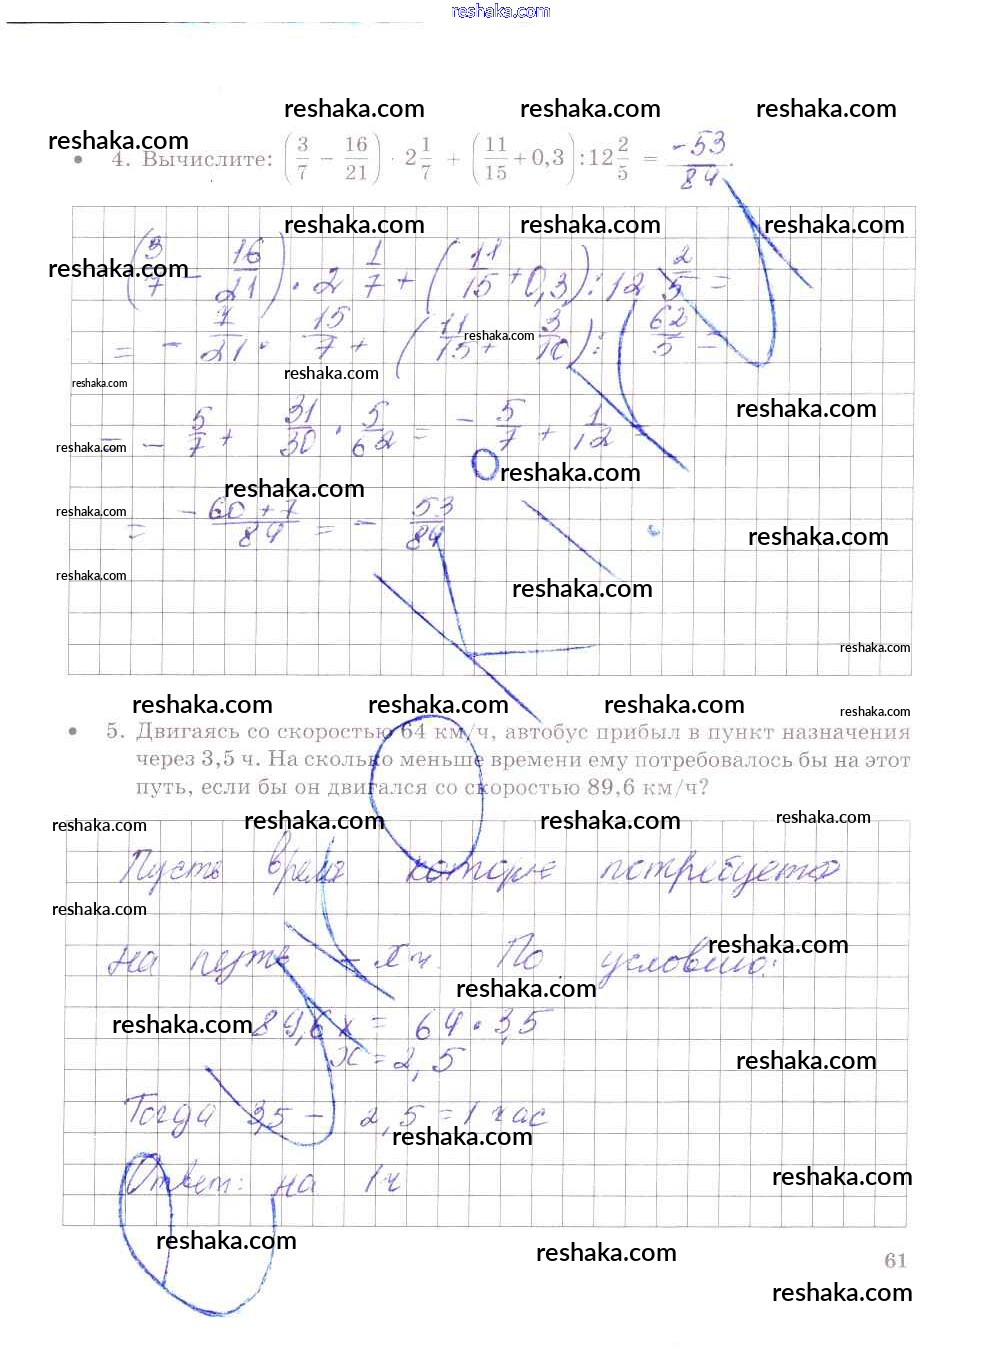 reshaka.com
reshaka.com reshaka.com reshaka.com
reshaka.com
4. Вычислите: (3/7 - 16/21) · 2 1/7 + (11/15 + 0,3) : 12 2/5 = -53/84.
reshaka.com reshaka.com reshaka.com
(3/7 - 16/21) · 2 1/7 + (11/15 + 0,3) : 12 2/5 =
reshaka.com
= - 7/21 · 15/7 + (11/15 + 3/10) : 62/5 =
reshaka.com
reshaka.com
reshaka.com
reshaka.com
= - 5/7 + 31/30 · 5/62 = - 5/7 + 1/12 =
reshaka.com
reshaka.com
reshaka.com
= -60+7/84 = - 53/84
reshaka.com
reshaka.com
reshaka.com
reshaka.com
reshaka.com
reshaka.com reshaka.com reshaka.com
reshaka.com
5. Двигаясь со скоростью 64 км/ч, автобус прибыл в пункт назначения
через 3,5 ч. На сколько меньше времени ему потребовалось бы на этот
путь, если бы он двигался со скоростью 89,6 км/ч?
reshaka.com reshaka.com reshaka.com reshaka.com
Пусть время которое потребуется
reshaka.com
на путь - x ч. По условию:
reshaka.com
reshaka.com
reshaka.com
89,6x = 64 · 3,5
x = 2,5
reshaka.com
Тогда 3,5 - 2,5 = 1 час
reshaka.com
Ответ: на 1 ч
reshaka.com
reshaka.com
reshaka.com
61
reshaka.com